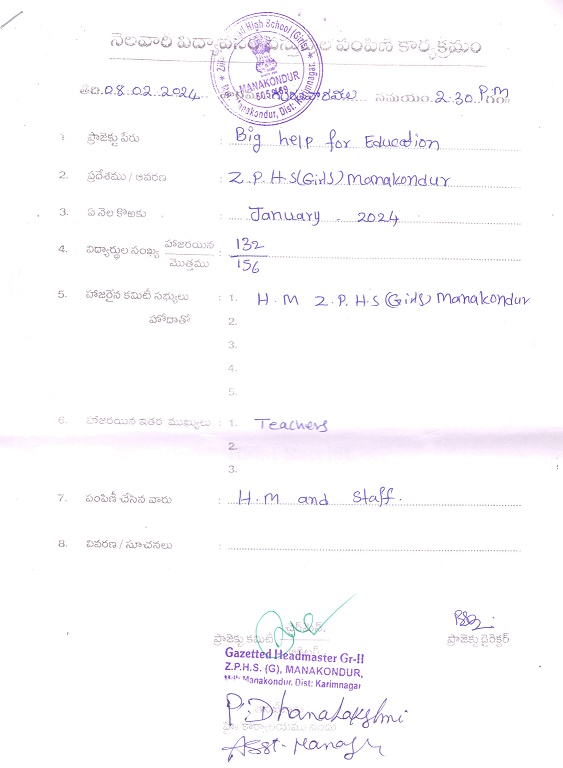 నెలవారి విద్యావసర వస్తువుల పంపిణి కార్యక్రమం
Zilla Parishad High School (Girls)
MANAKONDUR
505469
Manakondur, Dist: Karimnagar.
తేది.08.02.2024 గురువారము సమయం.2.30 P.M గం॥
1 ప్రాజెక్టు పేరు : Big help for Education
2. ప్రదేశము / ఆవరణ : Z.P.H.S(Girls) Manakondur
3. ఏ నెల కొఱకు : January . 2024
4. విద్యార్థుల సంఖ్య హాజరయిన : 132
మొత్తము 156
5. హాజరైన కమిటీ సభ్యులు : 1. H.M Z.P.H.S(Girls) Manakondur
హోదాతో 2.
3.
4.
5.
6. హాజరయిన ఇతర ముఖ్యులు : 1. Teachers
2.
3.
7. పంపిణీ చేసిన వారు : H.M and Staff.
8. వివరణ / సూచనలు :
ప్రాజెక్టు కమిటీ ఛైర్మన్. ప్రాజెక్టు డైరెక్టర్
Gazetted Headmaster Gr-II
Z.P.H.S. (G), MANAKONDUR,
Manakondur, Dist: Karimnagar
P. Dhanalakshmi
ప్రధాన కార్యాలయము నుండు
Asst. Manager